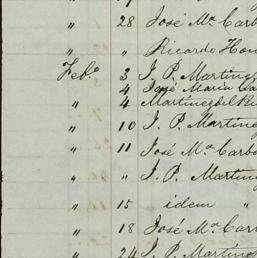 " 28 José Ma. Carb
" " Ricardo Hon
Febo. 3 J. P. Martin
4 José Maria
4 Martinez del Ri
" 10 J. P. Martine
" 11 José Ma. Carb
" " J. P. Martin
" 15 idem "
" 18 José Ma. Car
" 24 J. P. Martin